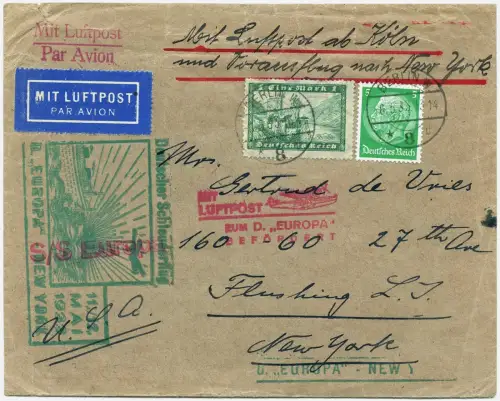 Mit Luftpost
Par Avion
Mit Luftpost ab Köln
und Vorausflug nach New York
MIT LUFTPOST
PAR AVION
Eine Mark
Deutsches Reich
Deutsches Reich
Mrs.
Gertrud de Vries
MIT
LUFTPOST
ZUM D. „EUROPA"
BEFÖRDERT
160 60 27th Ave
Flushing L. I.
New York
U. S. A.
Deutscher Schleuderflug
D. „EUROPA"
NEW YORK
MAI
D. „EUROPA" - NEW Y